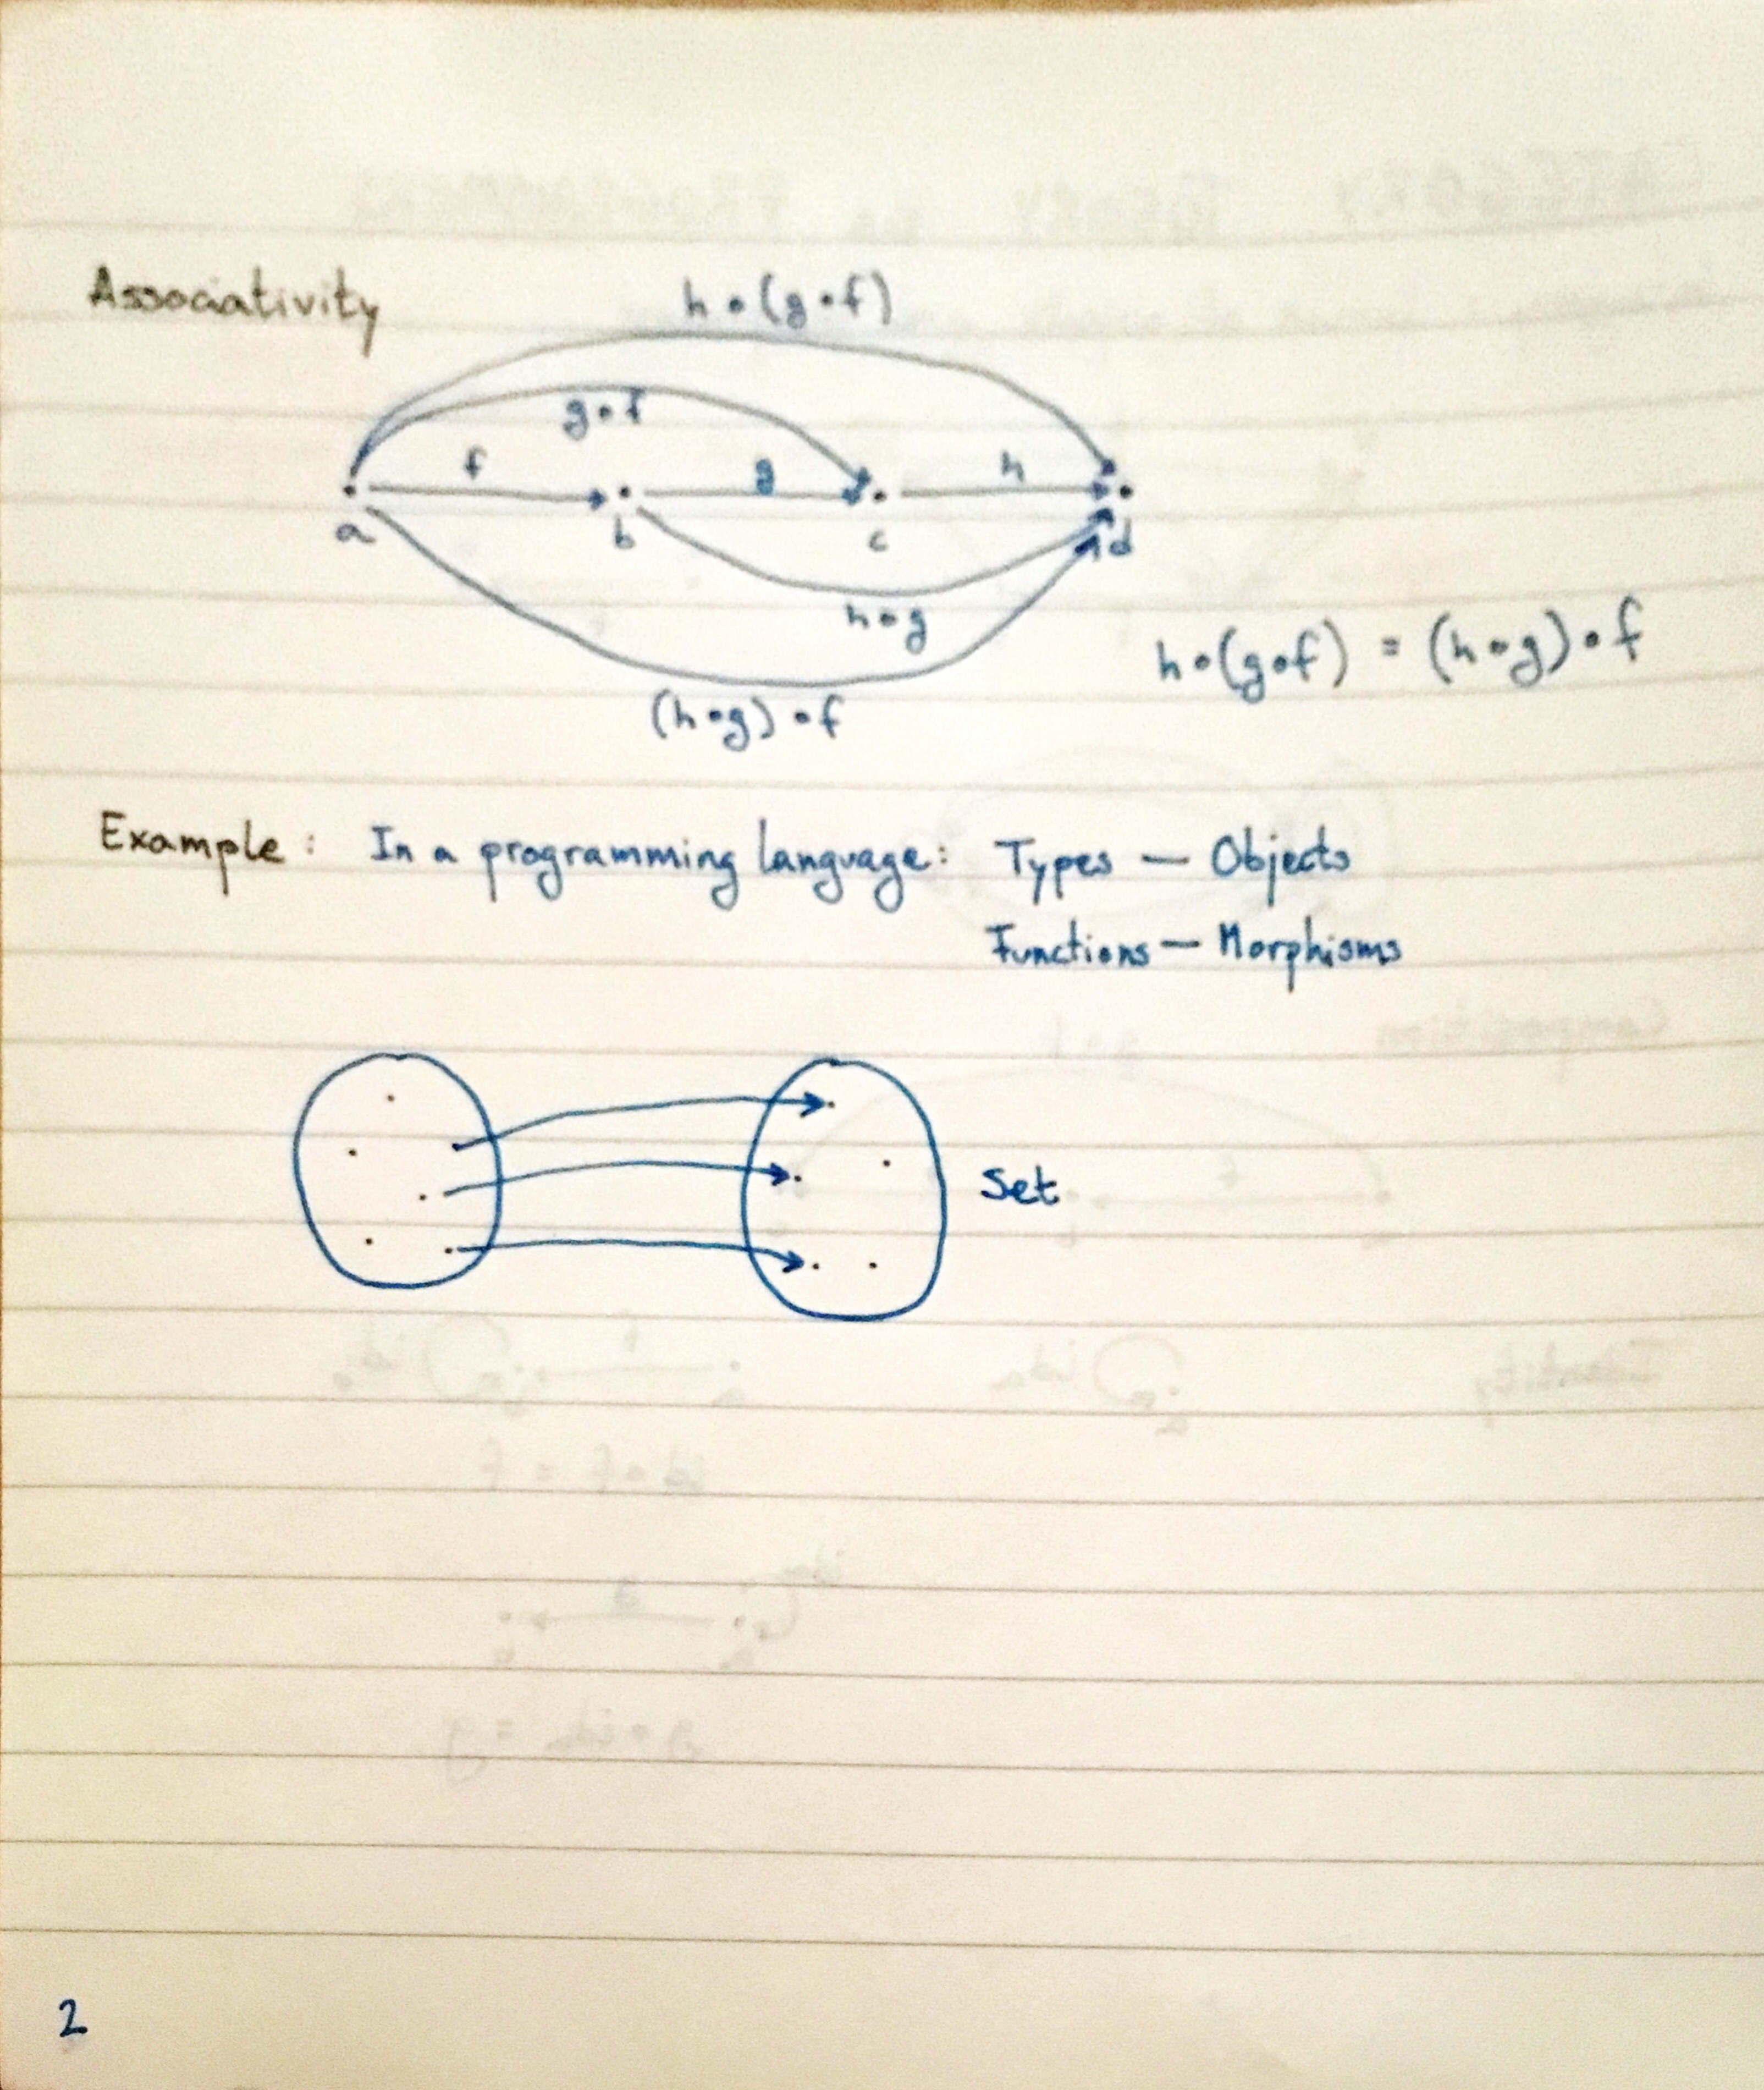 Associativity
h∘(g∘f)
g∘f
f g h
a b c d
h∘g
h∘(g∘f) = (h∘g)∘f
(h∘g)∘f
Example: In a programming language: Types — Objects
Functions — Morphisms
Set
2